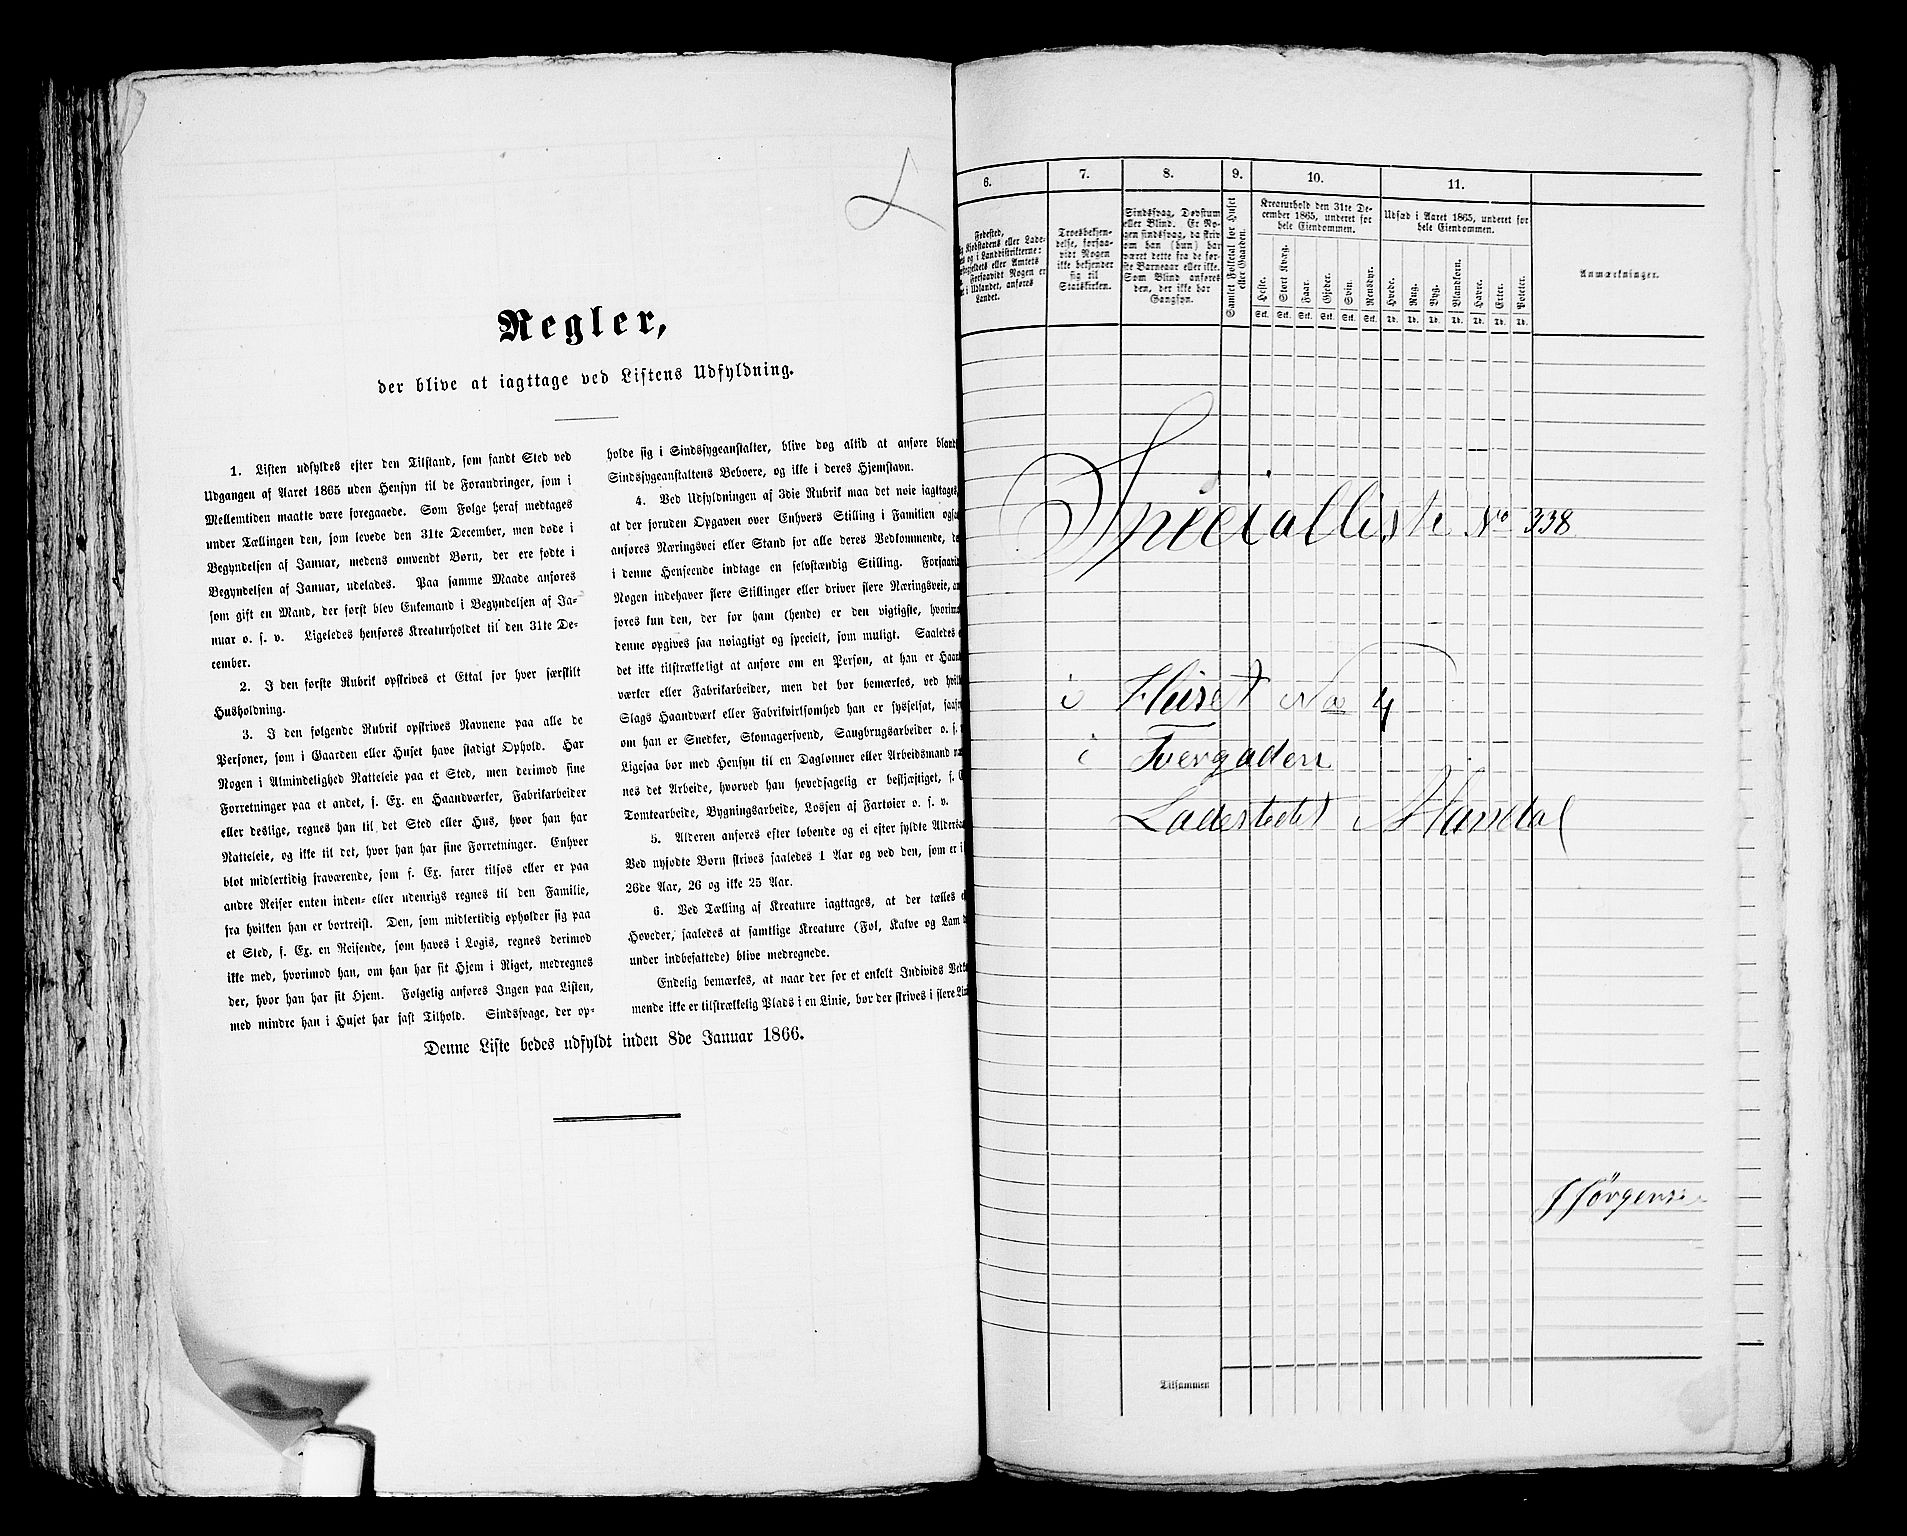 Regler,
der blive at iagttage ved Listens Udfyldning.
1. Listen udfyldes efter den Tilstand, som fandt Sted ved
Udgangen af Aaret 1865 uden Hensyn til de Forandringer, som i
Mellemtiden maatte være foregaaede. Som Følge heraf medtages
under Tællingen den, som levede den 31te December, men døde i
Begyndelsen af Januar, medens omvendt Børn, der ere fødte i
Begyndelsen af Januar, udelades. Paa samme Maade anføres
som gift en Mand, der først blev Enkemand i Begyndelsen af Ja-
nuar o. s. v. Ligeledes henføres Kreaturholdet til den 31te De-
cember.
2. I den første Rubrik opskrives et Ettal for hver særskilt
Husholdning.
3. I den følgende Rubrik opskrives Navnene paa alle de
Personer, som i Gaarden eller Huset have stadigt Ophold. Har
Nogen i Almindelighed Natteleie paa et Sted, men derimod sine
Forretninger paa et andet, f. Ex. en Haandværker, Fabrikarbeider
eller deslige, regnes han til det Sted eller Hus, hvor han har
Natteleie, og ikke til det, hvor han har sine Forretninger. Enhver
blot midlertidig fraværende, som f. Ex. farer tilsøs eller er paa
andre Reiser enten inden- eller udenrigs regnes til den Familie,
fra hvilken han er bortreist. Den, som midlertidig opholder sig paa
et Sted, f. Ex. en Reisende, som haves i Logis, regnes derimod
ikke med, hvorimod han, om han har sit Hjem i Riget, medregnes
der, hvor han har sit Hjem. Følgelig anføres Ingen paa Listen,
med mindre han i Huset har fast Tilhold. Sindssvage, der op-
holde sig i Sindssygeanstalter, blive dog altid at anføre bland
Sindssygeanstaltens Beboere, og ikke i deres Hjemstavn.
4. Ved Udfyldningen af 3die Rubrik maa det nøie iagttages,
at der foruden Opgaven over Enhvers Stilling i Familien ogsa
anføres Næringsvei eller Stand for alle deres Vedkommende, de
i denne Henseende indtage en selvstændig Stilling. Forsaavid
Nogen indehaver flere Stillinger eller driver flere Næringsveie, an
føres kun den, der for ham (hende) er den vigtigste, hvorimo
denne opgives saa nøiagtigt og specielt, som muligt. Saaledes e
det ikke tilstrækkeligt at anføre om en Person, at han er Haand
værker eller Fabrikarbeider, men det bør bemærkes, ved hvil
Slags Haandværk eller Fabrikvirksomhed han er sysselsat, saasom
om han er Snedker, Skomagersvend, Saugbrugsarbeider o. s. v
Ligesaa bør med Hensyn til en Daglønner eller Arbeidsmand næ
nes det Arbeide, hvorved han hovedsagelig er beskjæftiget, f. E
Tomtearbeide, Bygningsarbeide, Losſen af Fartøier o. s. v.
5. Alderen anføres efter løbende og ei efter fyldte Aldersaa
Ved nyfødte Børn skrives saaledes 1 Aar og ved den, som er i
26de Aar, 26 og ikke 25 Aar.
6. Ved Tælling af Kreature iagttages, at der tælles e
Hoveder, saaledes at samtlige Kreature (Føl, Kalve og Lam d
under indbefattede) blive medregnede.
Endelig bemærkes, at naar der for et enkelt Individs Vedko
mende ikke er tilstrækkelig Plads i en Linie, bør der skrives i flere Lin
Denne Liste bedes udfyldt inden 8de Januar 1866.
6. 7. 8. 9. 10. 11.
Fødested,
g Kjøbstadens eller Lade-
og i Landdistrikterne:
stegjeldets eller Amtets
Forsaavidt Nogen er
i Udlandet, anføres
Landet.
Troesbekjen-
delse, forsaa-
vidt Nogen
ikke bekjender
sig til
Statskirken.
Sindssvag, Døvstum
eller Blind. Er No-
gen sindssvag, da skriv
om han (hun) har
været dette fra de før-
ste Barneaar eller ikke.
Som Blind anføres
den, der ikke har
Gangsyn.
Samlet Folketal for Huset
eller Gaarden.
Kreaturhold den 31te De-
cember 1865, underet for
hele Eiendommen.
Heste. Stort Kvæg. Faar. Gjeder. Svin. Rensdyr.
Stk. Stk. Stk. Stk. Stk. Stk.
Udsæd i Aaret 1865, underet for
hele Eiendommen.
Hvede. Rug. Byg. Blandkorn. Havre. Erter. Poteter.
Td. Td. Td. Td. Td. Td. Td.
Anmærkninger.
Specialliste No 338
i Huset No 4
i Tvergaden
Ladestedet Mandal
J Jørgense
Tilsammen